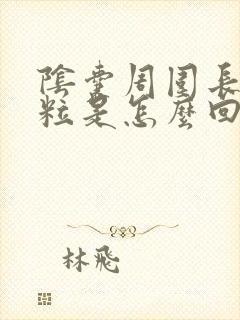 陰囊周圍長
粒是怎麼回
林飛